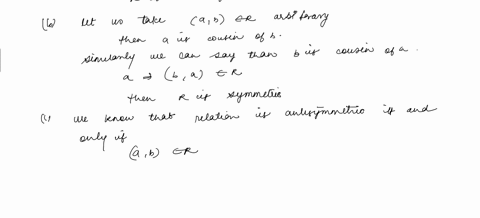 (b) Let us take (a,b) ∈R arbitrary
then a is cousin of b.
similarly we can say than b is cousin of a.
a ⇒ (b, a) ∈R
then R is symmetric
(c) we know that relation is antisymmetric if and
only if
(a, b) ∈R